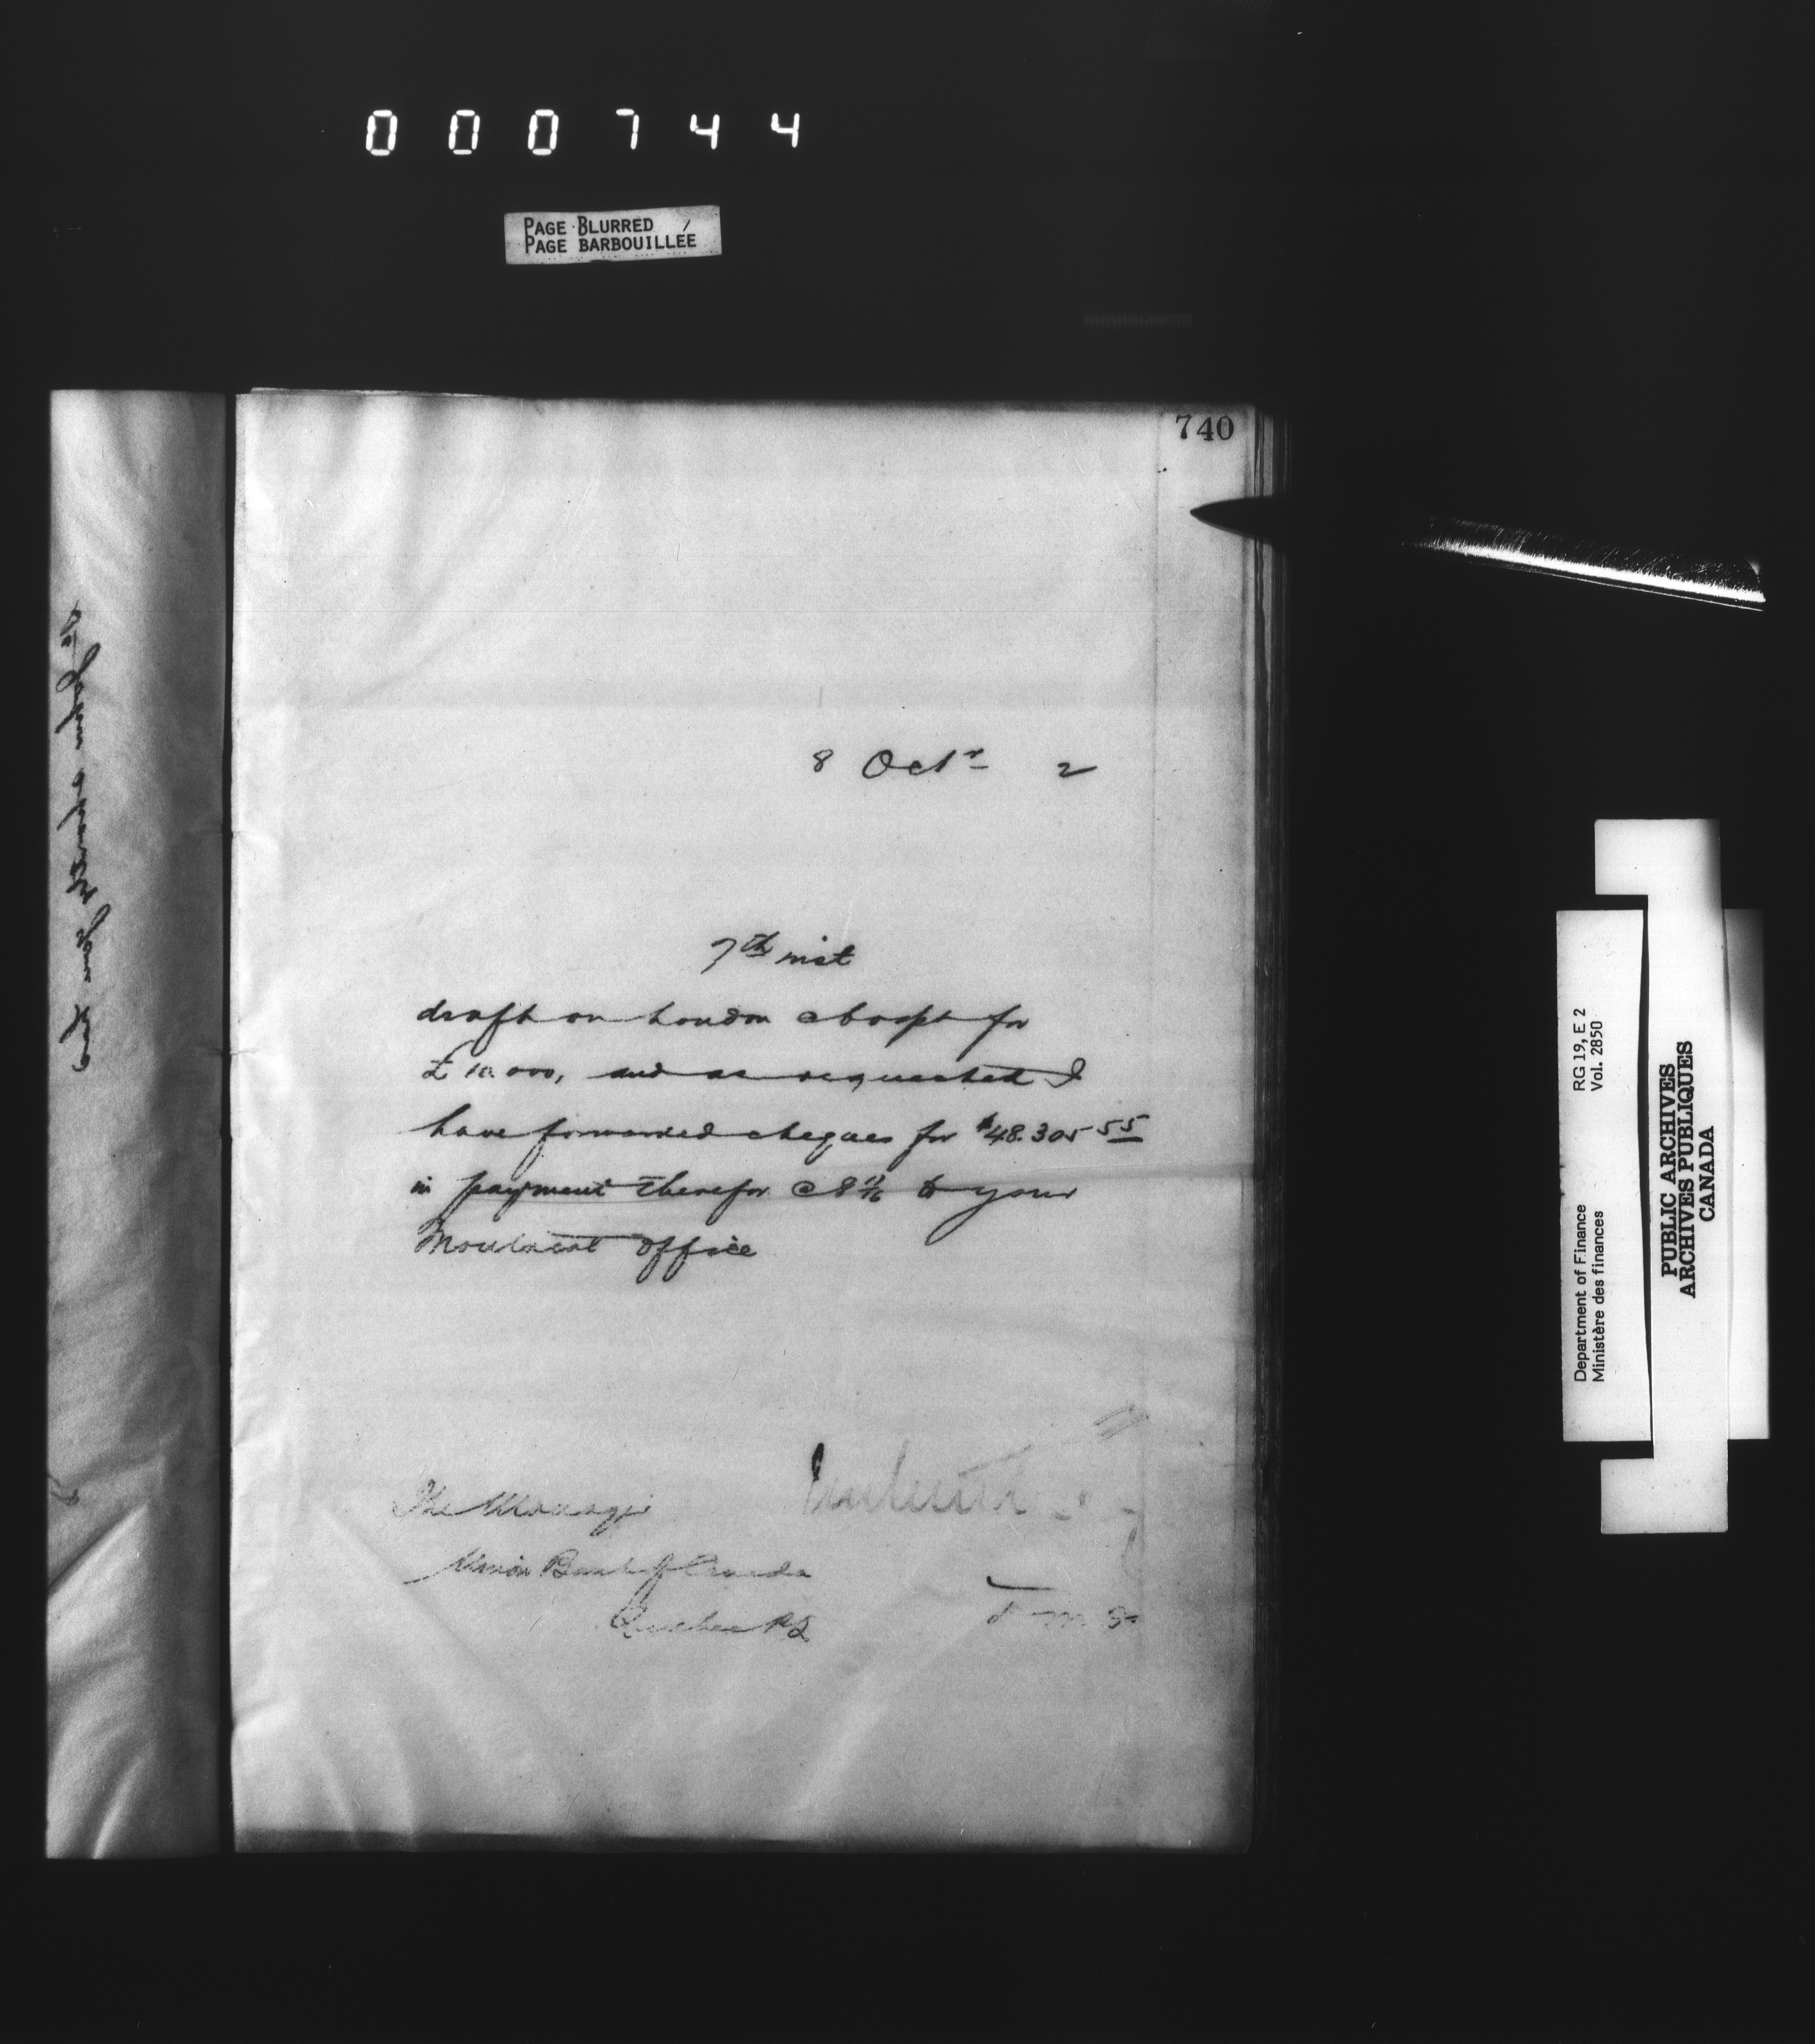 000744
PAGE BLURRED
PAGE BARBOUILLÉE
740
8 Octr 2
7th inst
draft on London a/c Dept for
£10.000, and as requested I
have forwarded cheques for $48.305 55
in payment therefor @ 8 11/16 to your
Montreal Office
The Manager
Union Bank of Canada
Quebec P.Q.
D M F
Department of Finance
Ministère des finances
RG 19, E 2
Vol. 2850
PUBLIC ARCHIVES
ARCHIVES PUBLIQUES
CANADA